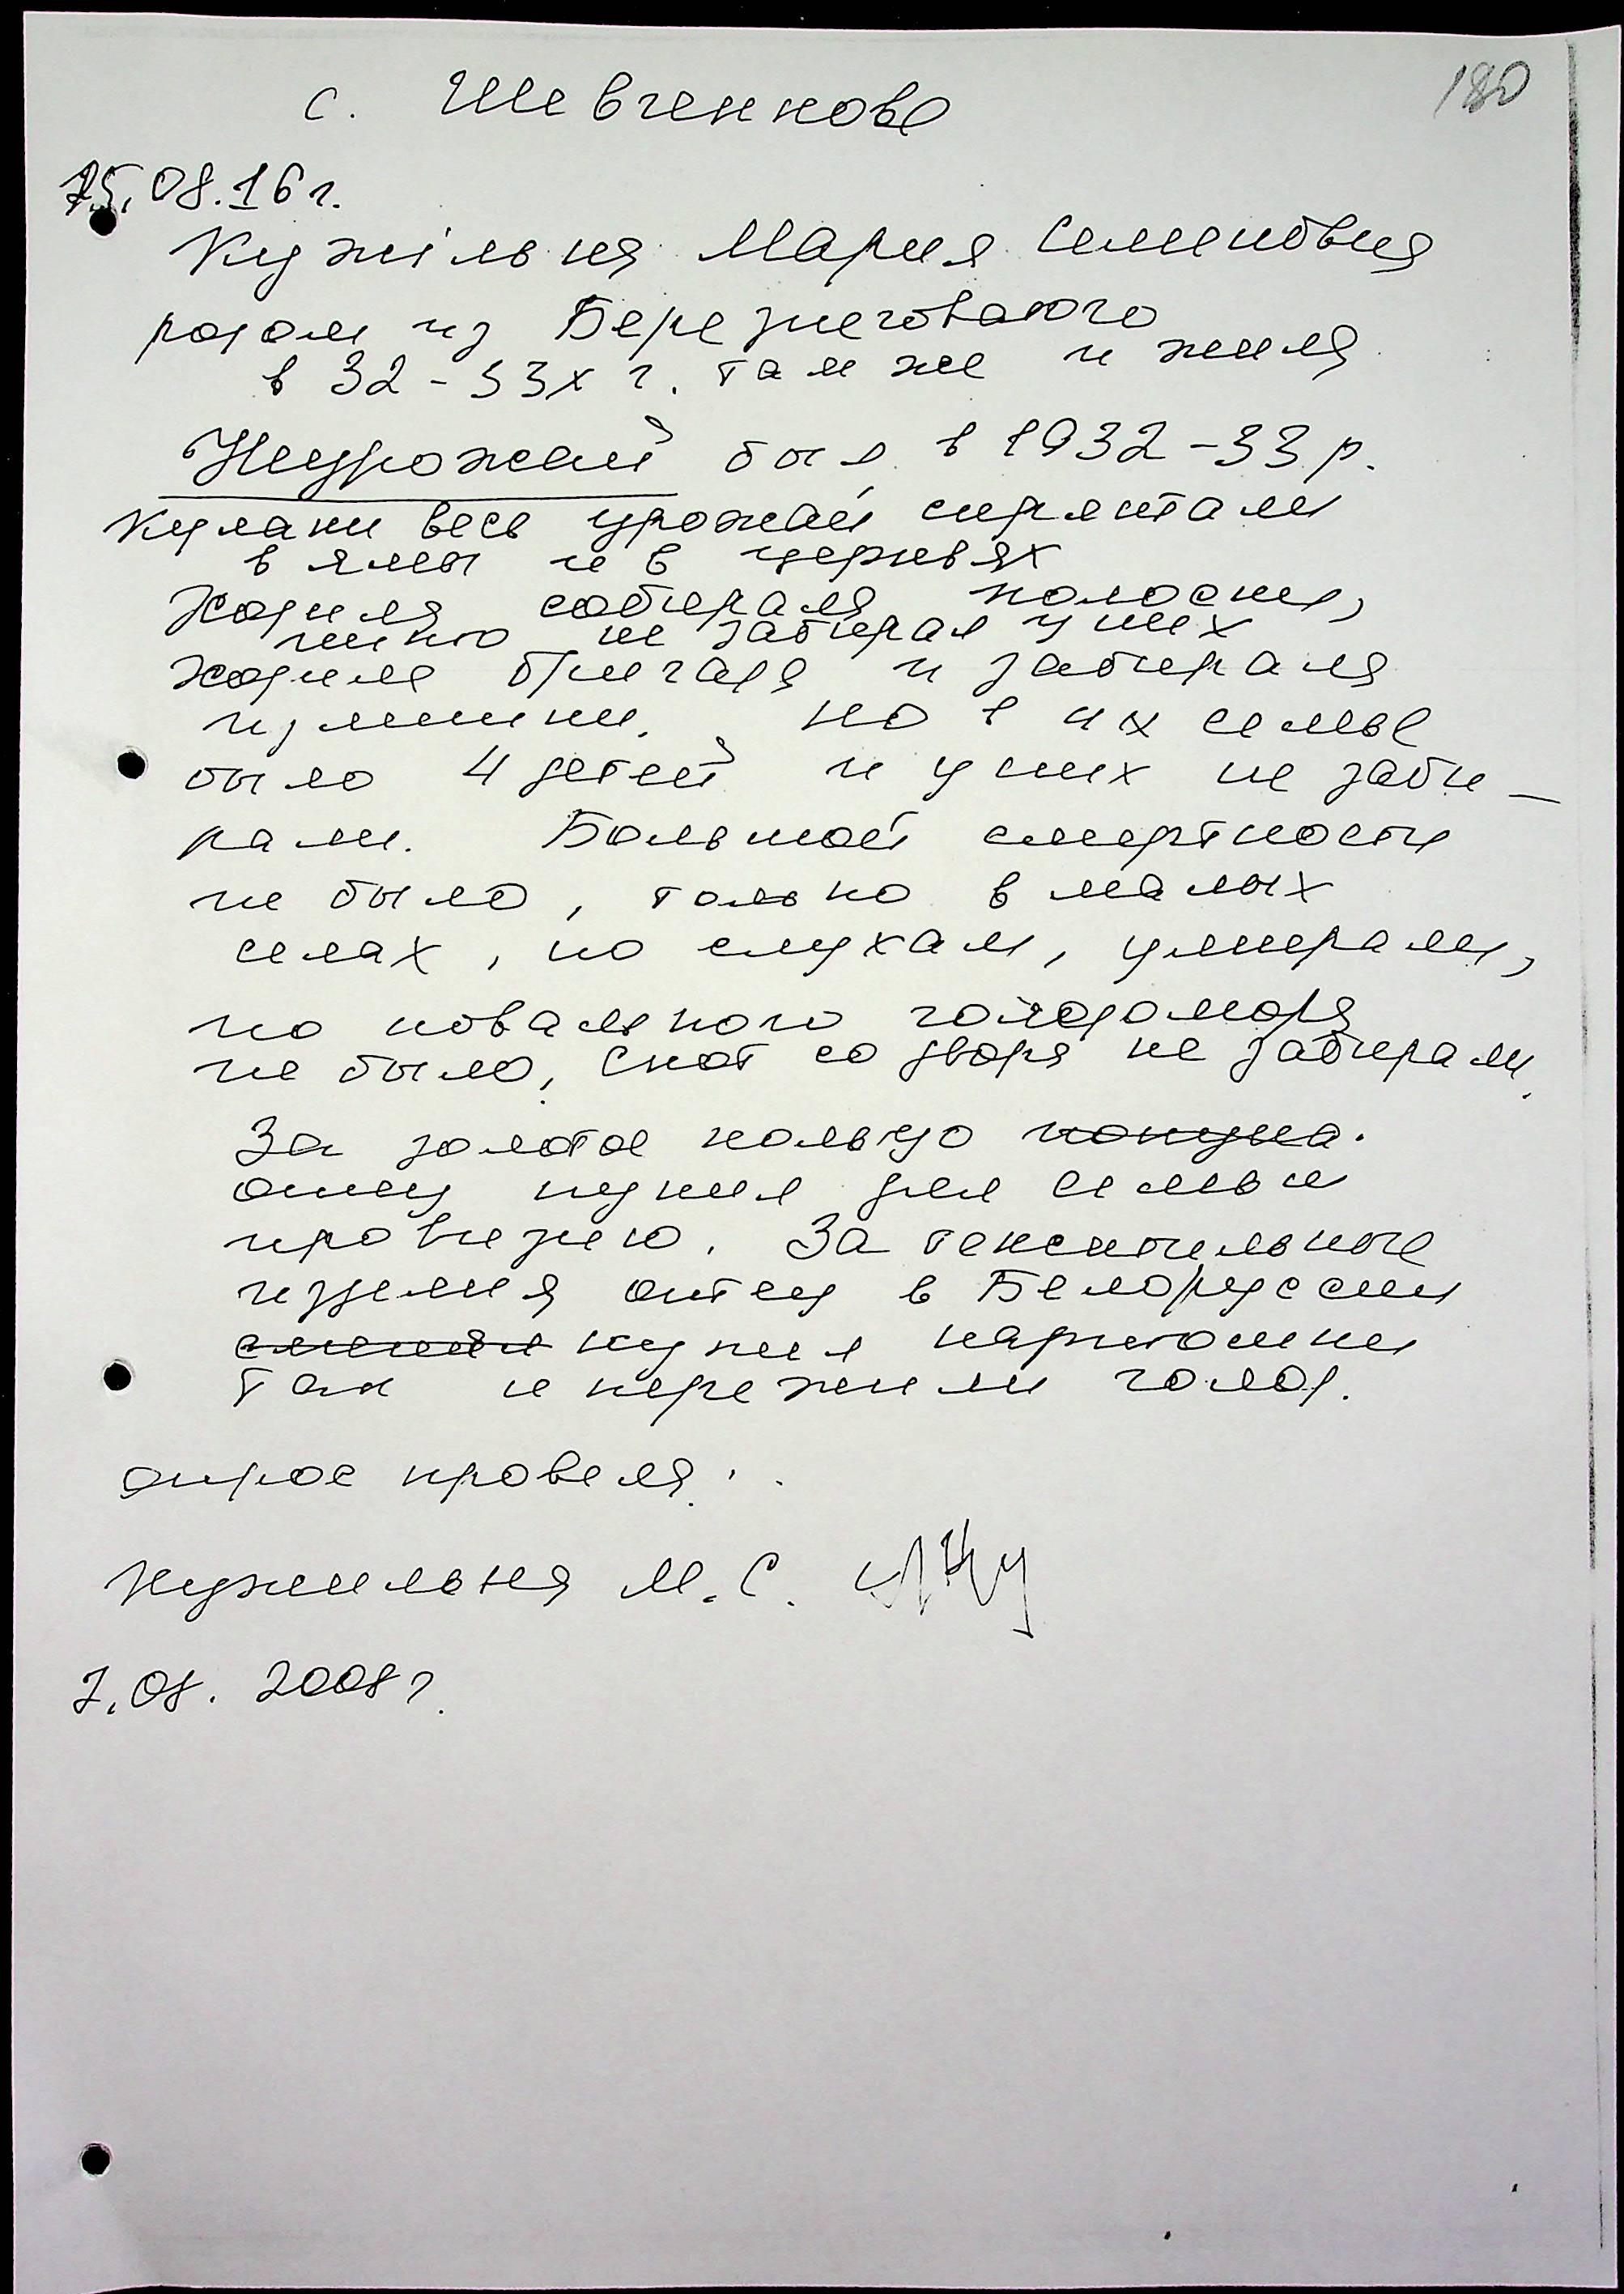 с. Шевченково
180
15.08.16 г.
Кужільна Мария Семеновна
родом из Березнеговатого
в 32-33х г. там же и жила
Неурожай был в 1932-33 р.
Кулаки весь урожай спрятали
в ямы и в церквях
Ходила собирала колоски,
никто не забирал у них
ходила бригада и забирала
излишки. но в их семье
было 4 детей и у них не заби-
рали. Большой смертности
не было, только в малых
селах, по слухам, умерали,
но повального голодомора
не было, Скот со двора не забирали.
За золотое кольцо
отец купил для семьи
провизию. За текстильные
изделия отец в Белоруссии
купил картошки
так и пережили голод.
опрос провела:
Кужильна М.С.
7.08. 2008 г.